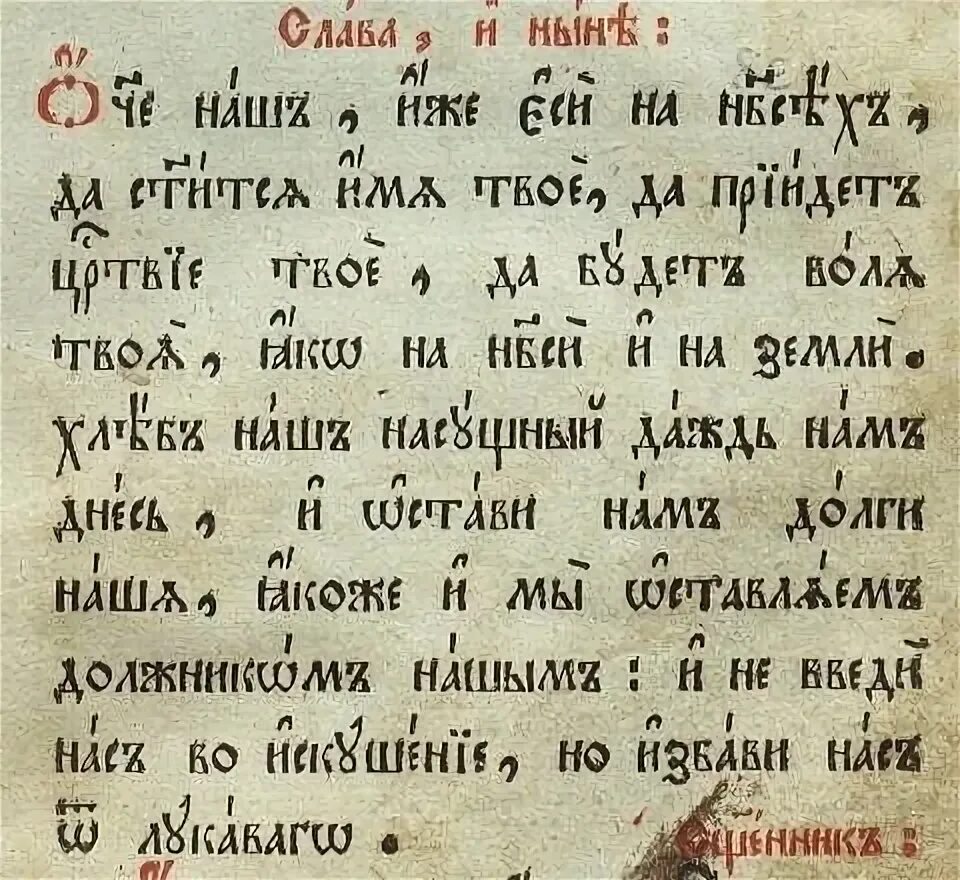 Сла́ва, и҆ ны́нѣ:
Ѻ҆́ч҃е на́шъ, и҆́же є҆сѝ на нб҃сѣ́хъ,
да ст҃и́тсѧ и҆́мѧ твоѐ, да прїи́детъ
цр҇твїе твоѐ, да бꙋ́детъ во́лѧ
твоѧ̀, ꙗ҆́кѡ на нб҃сѝ и҆ на землѝ.
хлѣ́бъ на́шъ насꙋ́щный да́ждь на́мъ
дне́сь, и҆ ѡ҆ста́ви на́мъ до́лги
на́шѧ, ꙗ҆́коже и҆ мы̀ ѡ҆ставлѧ́емъ
должникѡ́мъ на́шымъ: и҆ не введѝ
на́съ во и҆скꙋше́нїе, но и҆зба́ви на́съ
ѿ лꙋка́вагѡ.
Сщ҃е́нникъ: